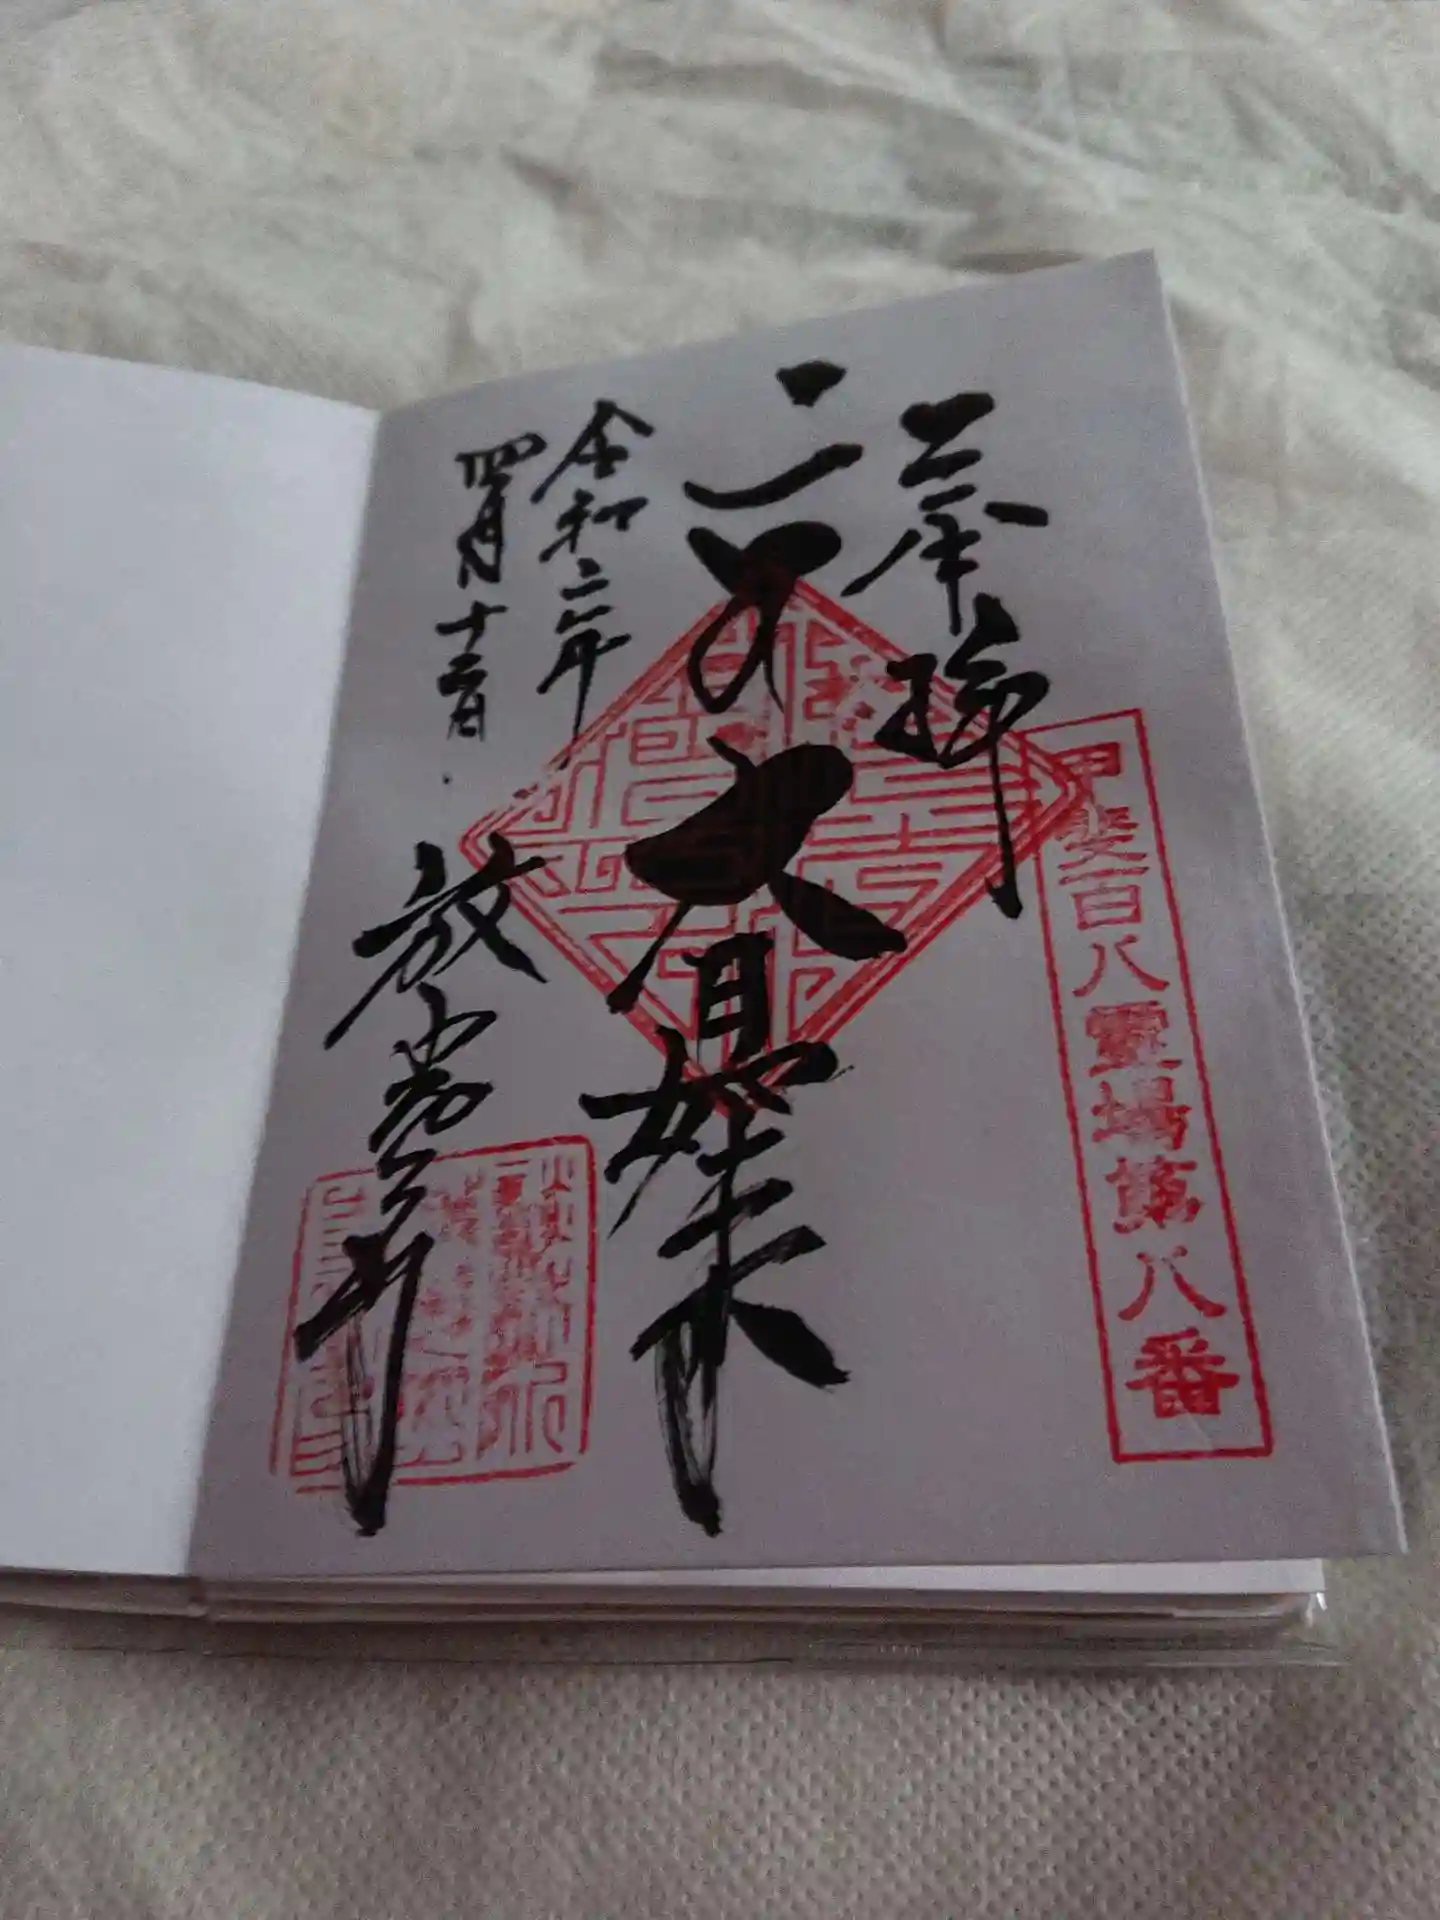 奉拝
甲斐百八霊場第八番
大日如来
令和二年
四月十二日
放光寺